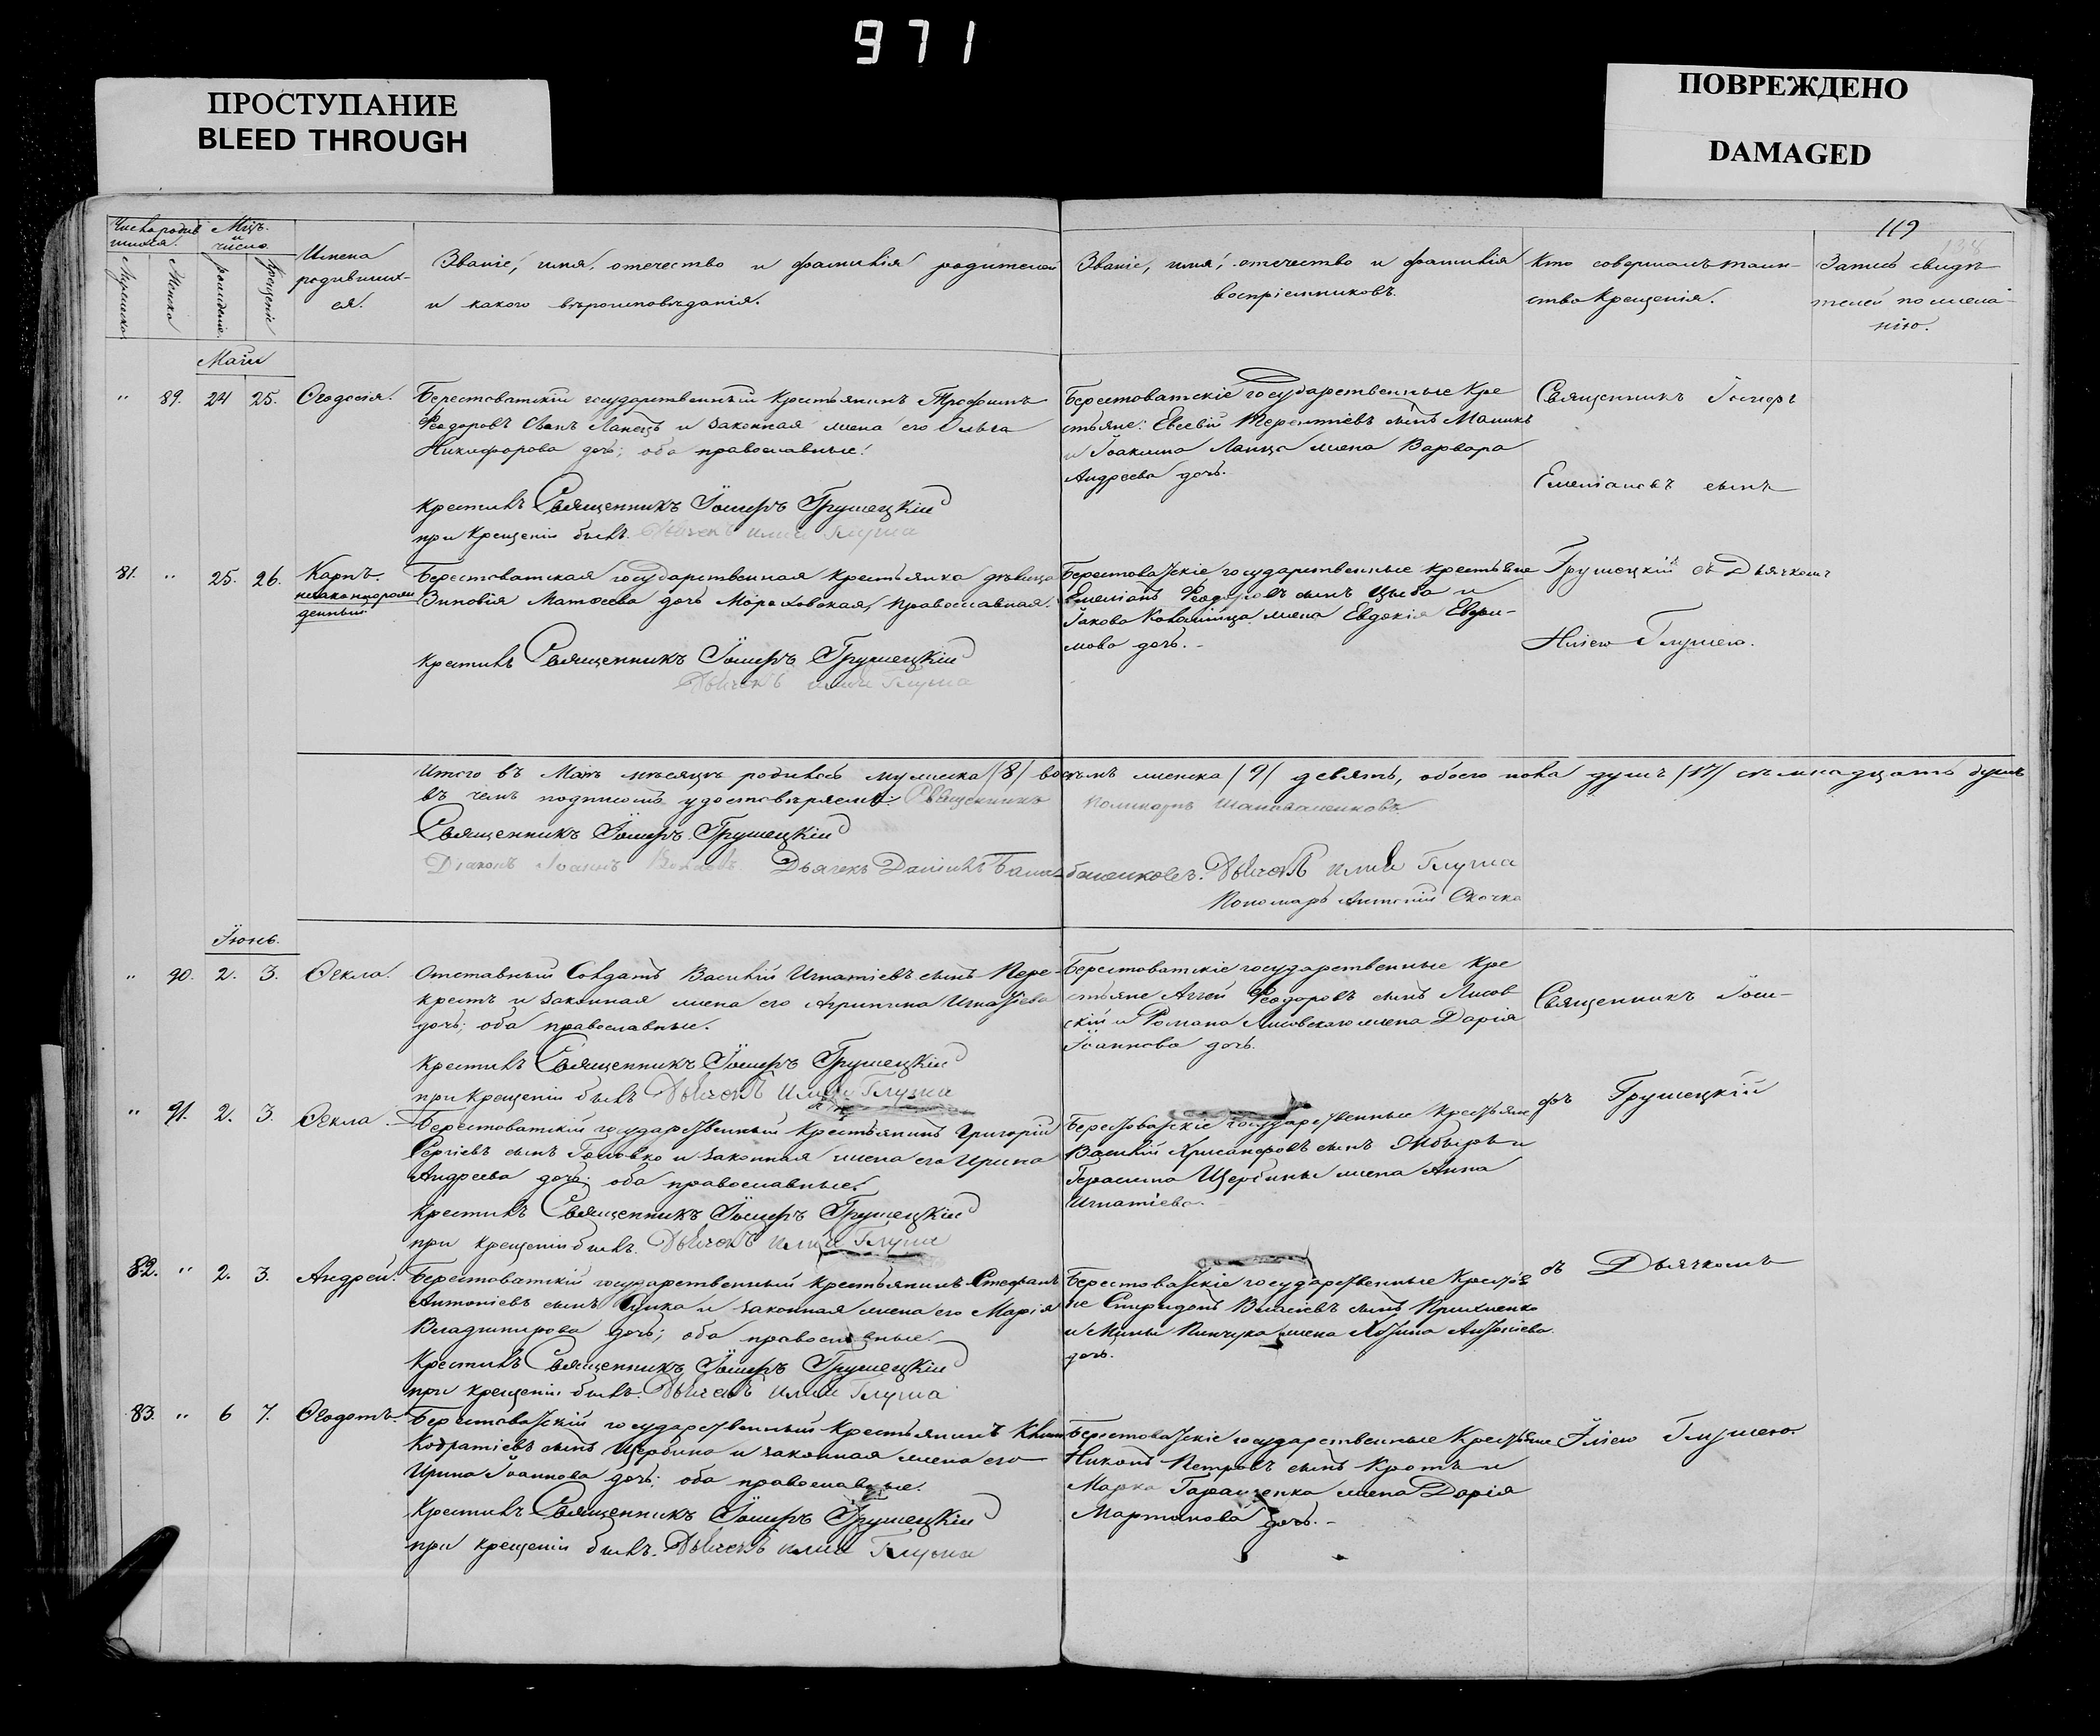 971
ПРОСТУПАНИЕ
BLEED THROUGH
ПОВРЕЖДЕНО
DAMAGED
119
Число родив
шихся.
Мужеска
Женска
Мѣц.
и
число.
рожденія.
крещенія
Имена
родивших-
ся.
Званіе, имя, отечество и фамилія родителей
и какого вѣроисповѣданія.
Званіе, имя, отечество и фамилія
воспріемниковъ.
Кто совершалъ таин-
ство крещенія.
Запись свидѣ
телей по жела-
нію.
Маій
" 89. 24 25. Ѳеодосія. Берестоватскій государственный крестьянинъ Трофимъ
Феодоровъ сынъ Лапецъ и законная жена его Ольга
Никифорова дочь; оба православные.
крестилъ Священникъ Іосифъ Грушецкій
при крещеніи былъ Дьячекъ Илия Глуша
Берестоватскіе государственные кре
стьяне: Евсевій Терентіевъ сынъ Маликъ
и Іоакима Лапца жена Варвара
Андреева дочь.
Священникъ Іосифъ
Емеліановъ сынъ
81. " 25. 26. Карпъ. Берестоватская государственная крестьянка дѣвица
незаконнорож
денный
Зиновія Матѳеева дочь Мороховская, православная.
крестилъ Священникъ Іосифъ Грушецкій
Дьячекъ Илия Глуша
Берестоватскіе государственные крестьяне
Емеліанъ Феодоровъ сынъ Цыба и
Іакова жена Евдокія Ефи-
мова дочь.
Грушецкій съ Дьячкомъ
Иліею Глушею.
Итого въ Маѣ мѣсяцѣ родилось мужеска /8/ восемь женска /9/ девять, обоего пола душъ /17/ съмнадцать душъ
въ чемъ подписомъ удостовѣряемъ: Священникъ
Священникъ Іосифъ Грушецкій
Діаконъ Іоаннъ Дьячекъ Даніилъ Дьячекъ Илия Глуша
Пономаръ Антоній Скочко
Іюнь.
" 90. 2. 3. Ѳекла. Отставный Солдатъ Василій Игнатіевъ сынъ Пере-
крестъ и законная жена его Агрипина Игнатіева
дочь; оба православные.
крестилъ Священникъ Іосифъ Грушецкій
при крещеніи былъ Дьячекъ Илия Глуша
Берестоватскіе государственные кре
стьяне Аггей Феодоровъ сынъ Лисов
скій и Романа Лисовскаго жена Дарія
Іоаннова дочь.
Священникъ Іоси-
" 91. 2. 3. Ѳекла. Берестоватскій государственный крестьянинъ Григорій
Сергіевъ сынъ Головко и законная жена его Ирина
Андреева дочь; оба православные.
крестилъ Священникъ Іосифъ Грушецкій
при крещеніи былъ. Дьячекъ Илия Глуша
Берестоватскіе государственные крестьяне
Василій Хрисанфовъ сынъ и
Герасима Щербины жена Анна
Игнатіева.
фъ Грушецкій
82. " 2. 3. Андрей. Берестоватскій государственный крестьянинъ Стефанъ
Антоніевъ сынъ и законная жена его Марія
Владимирова дочь; оба православные.
Крестилъ Священникъ Іосифъ Грушецкій
при крещеніи былъ. Дьячекъ Илия Глуша
Берестоватскіе государственные крестья
не Спиридонъ сынъ
и жена Антоніева
дочь.
съ Дьячкомъ
83. " 6 7. Ѳеодотъ. Берестоватскій государственный крестьянинъ Климъ
Кодратіевъ сынъ Щербина и законная жена его
Ирина Іоаннова дочь; оба православные.
Крестилъ Священникъ Іосифъ Грушецкій
при крещеніи былъ. Дьячекъ Илия Глуша
Берестоватскіе государственные крестьяне
Никонъ Петровъ сынъ Кротъ и
Марка Гаращенка жена Дарія
Мартинова дочь.
Іліею Глушею.